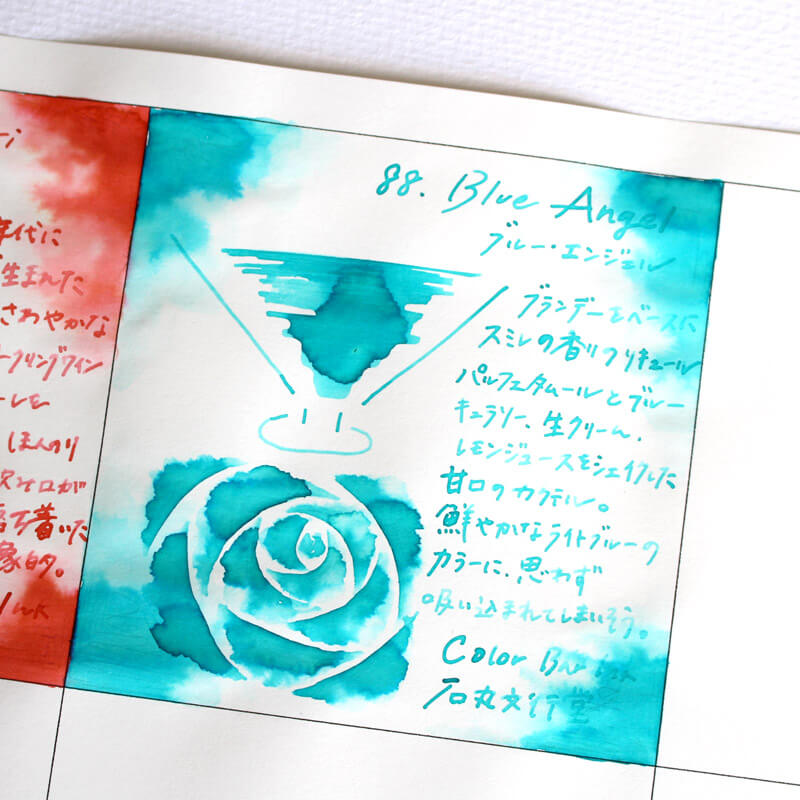 年代に
生まれた
さわやかな
ークリングワイン
ーレを
ほんのり
口が
落ち着いた
象的。
Ink
88. Blue Angel
ブルー・エンジェル
ブランデーをベースに
スミレの香りのリキュール
パルフェタムールとブルー
キュラソー、生クリーム、
レモンジュースをシェイクした
甘口のカクテル。
鮮やかなライトブルーの
カラーに、思わず
吸い込まれてしまいそう。
Color Bar Ink
石丸文行堂